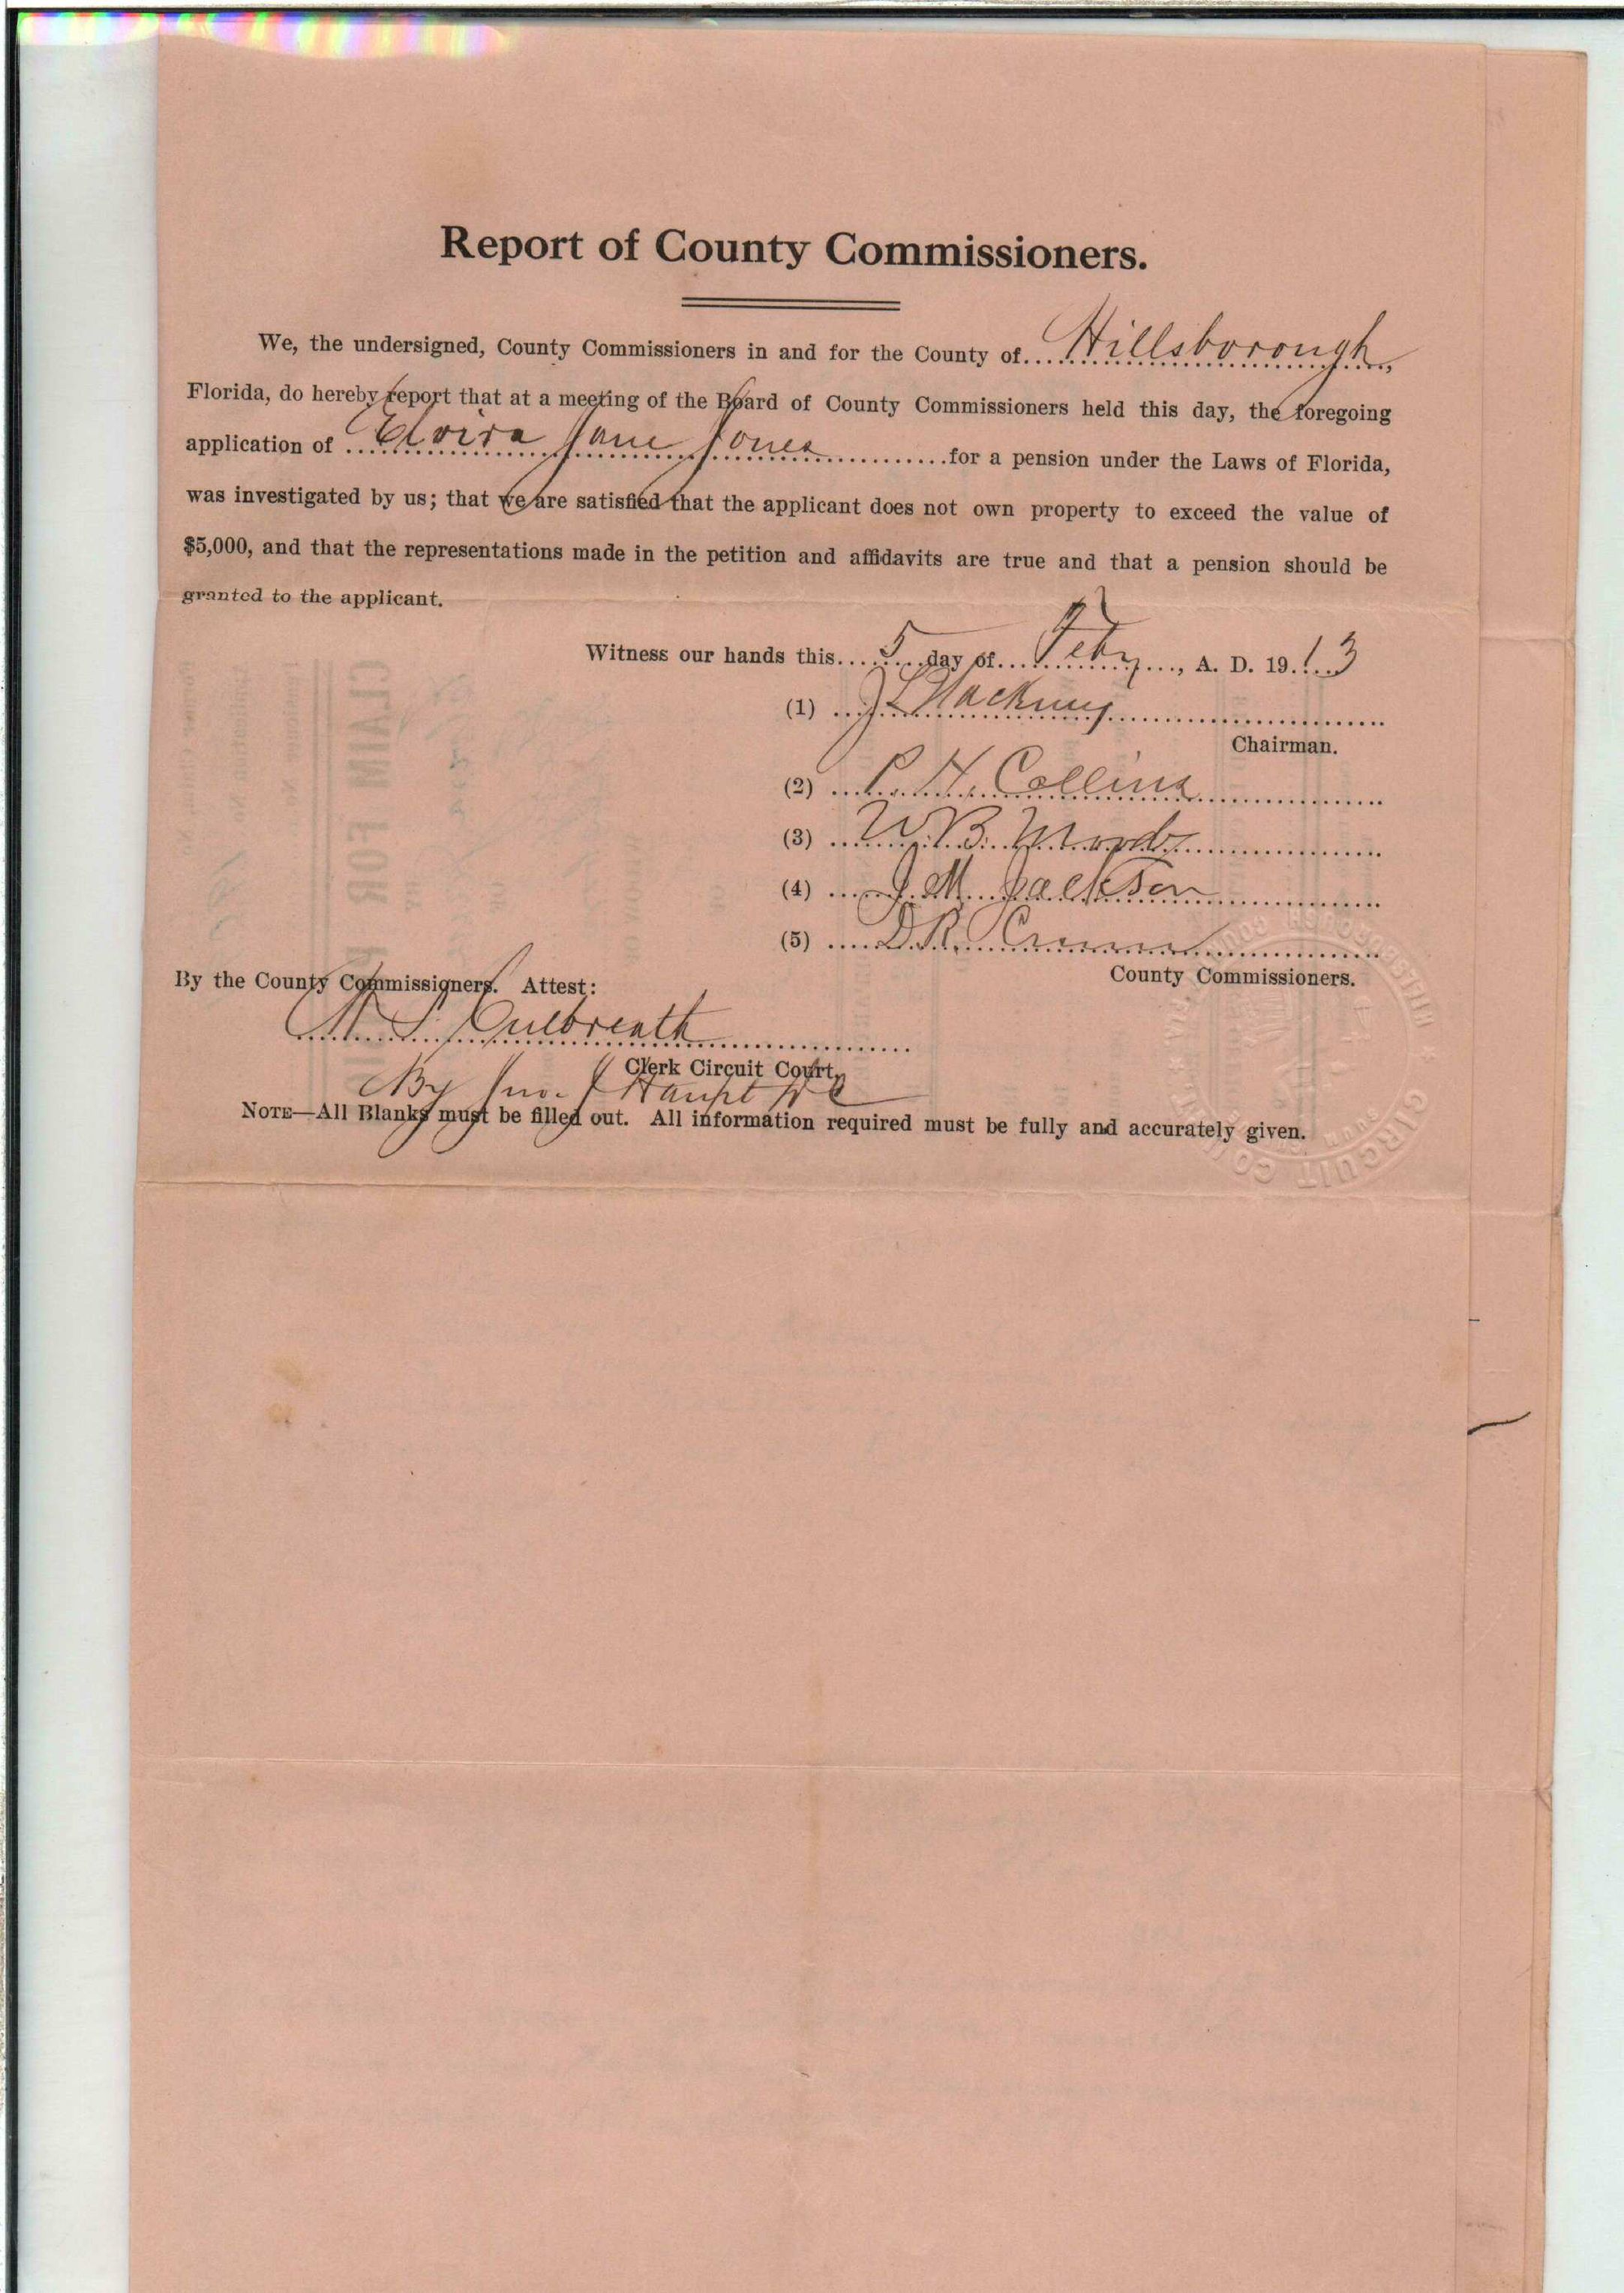 Report of County Commissioners.
We, the undersigned, County Commissioners in and for the County of Hillsborough,
Florida, do hereby report that at a meeting of the Board of County Commissioners held this day, the foregoing
application of Elvira Jane Jones for a pension under the Laws of Florida,
was investigated by us; that we are satisfied that the applicant does not own property to exceed the value of
$5,000, and that the representations made in the petition and affidavits are true and that a pension should be
granted to the applicant.
Witness our hands this 5 day of Feby, A. D. 1913
(1)
Chairman.
(2) C. H. Collins
(3) W. B.
(4) J. M. Jackson
(5) D. R.
By the County Commissioners. Attest:
County Commissioners.
Culbreath
Clerk Circuit Court.
By Jno. J Haupt DC
NOTE—All Blanks must be filled out. All information required must be fully and accurately given.